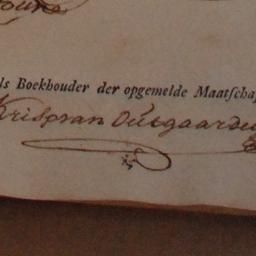 ls Boekhouder der opgemelde Maatſchap
Krispyan Outgaarden